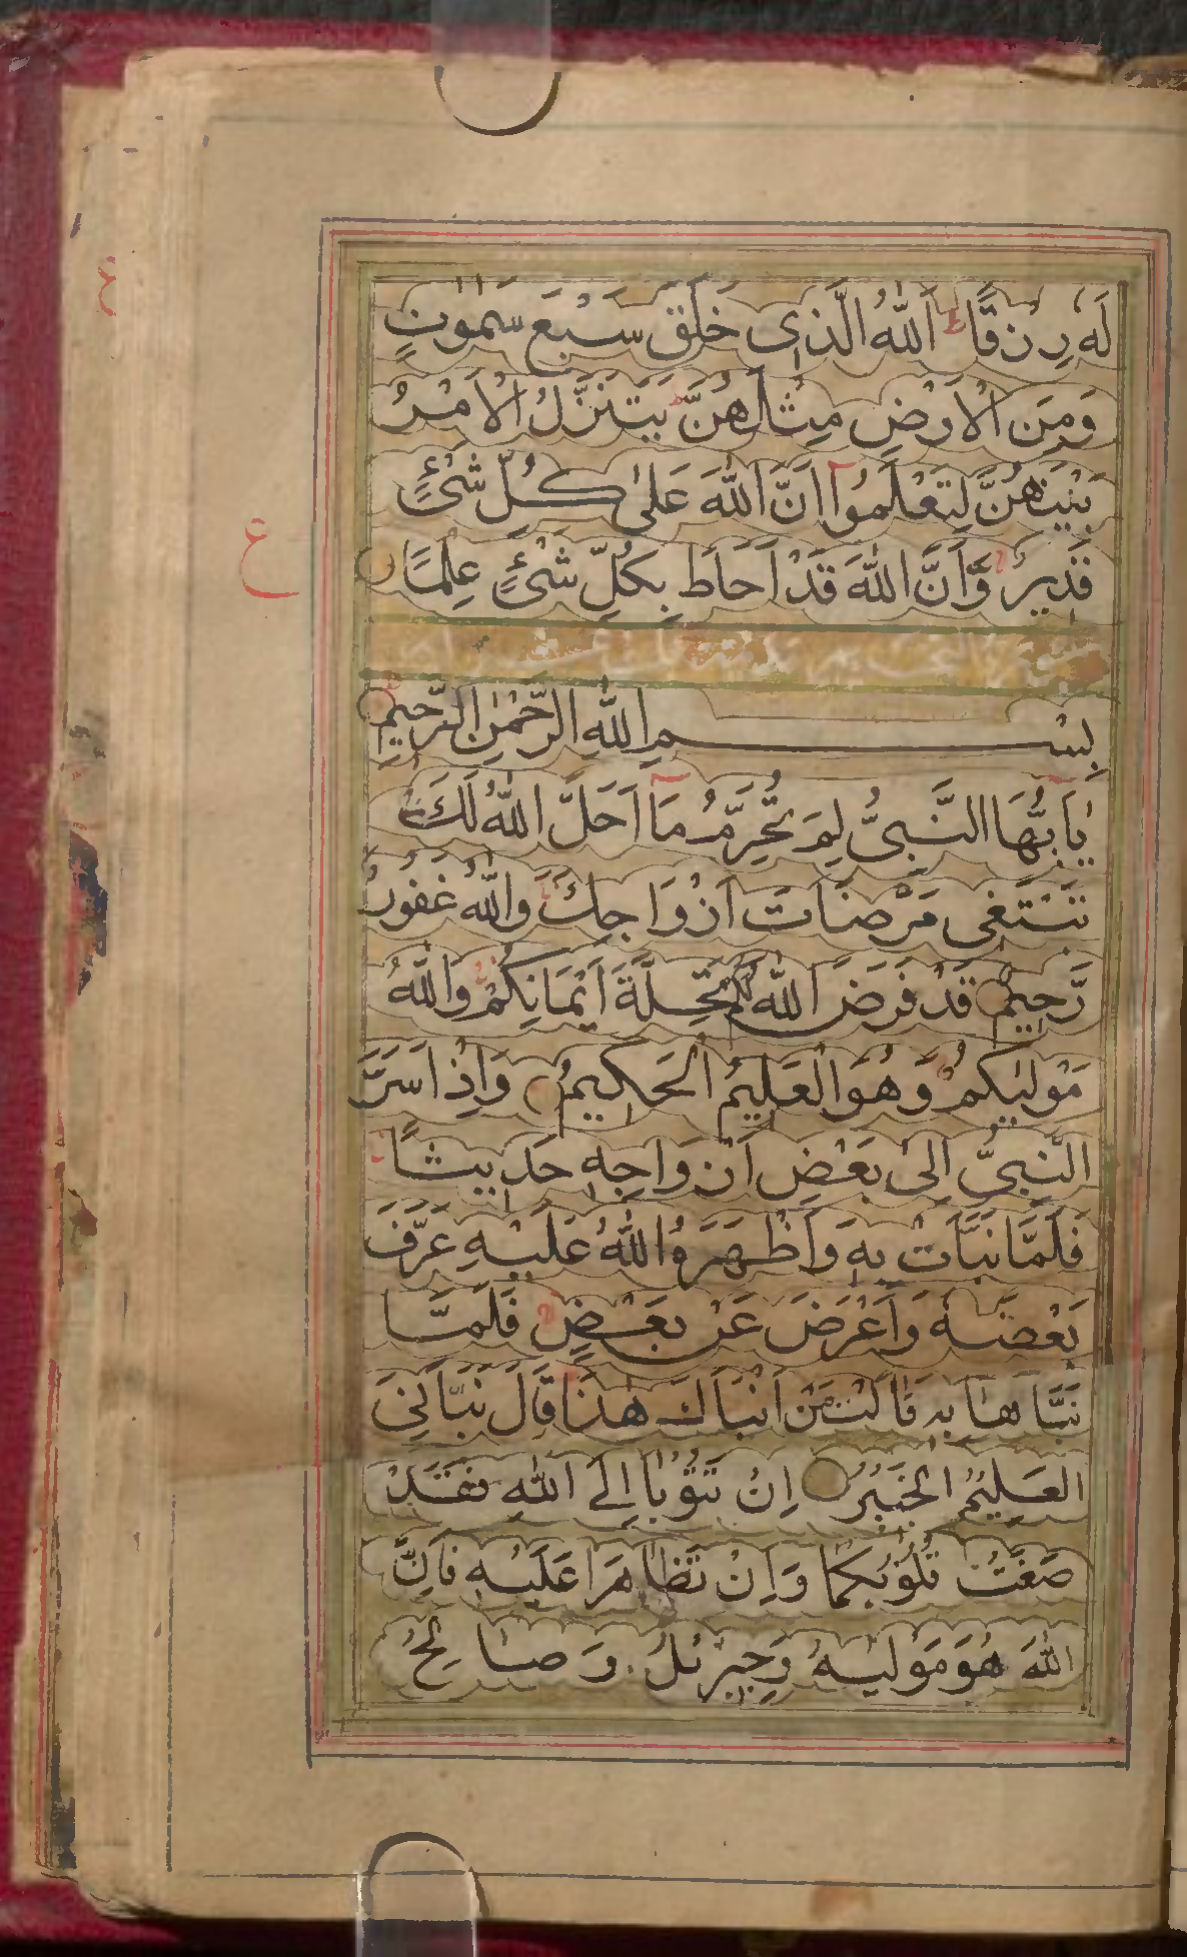 لَهٗ رِزْقًا اَللّٰهُ الَّذِى خَلَقَ سَبْعَ سَمٰوٰتٍ
وَمِنَ الْاَرْضِ مِثْلَهُنَّ يَتَنَزَّلُ الْاَمْرُ
بَيْنَهُنَّ لِتَعْلَمُوْٓا اَنَّ اللّٰهَ عَلٰى كُلِّ شَىْءٍ
قَدِيْرٌ وَّاَنَّ اللّٰهَ قَدْ اَحَاطَ بِكُلِّ شَىْءٍ عِلْمًا
بِسْمِ اللّٰهِ الرَّحْمٰنِ الرَّحِيْمِ
يٰٓاَيُّهَا النَّبِىُّ لِمَ تُحَرِّمُ مَآ اَحَلَّ اللّٰهُ لَكَ
تَبْتَغِى مَرْضَاتَ اَزْوَاجِكَ وَاللّٰهُ غَفُوْرٌ
رَّحِيْمٌ قَدْ فَرَضَ اللّٰهُ لَكُمْ تَحِلَّةَ اَيْمَانِكُمْ وَاللّٰهُ
مَوْلٰىكُمْ وَهُوَ الْعَلِيْمُ الْحَكِيْمُ وَاِذْ اَسَرَّ
النَّبِىُّ اِلٰى بَعْضِ اَزْوَاجِهٖ حَدِيْثًا
فَلَمَّا نَبَّاَتْ بِهٖ وَاَظْهَرَهُ اللّٰهُ عَلَيْهِ عَرَّفَ
بَعْضَهٗ وَاَعْرَضَ عَنْ بَعْضٍ فَلَمَّا
نَبَّاَهَا بِهٖ قَالَتْ مَنْ اَنْبَاَكَ هٰذَا قَالَ نَبَّاَنِىَ
الْعَلِيْمُ الْخَبِيْرُ اِنْ تَتُوْبَا اِلَى اللّٰهِ فَقَدْ
صَغَتْ قُلُوْبُكُمَا وَاِنْ تَظَاهَرَا عَلَيْهِ فَاِنَّ
اللّٰهَ هُوَ مَوْلٰىهُ وَجِبْرِيْلُ وَصَالِحُ
ع
ع